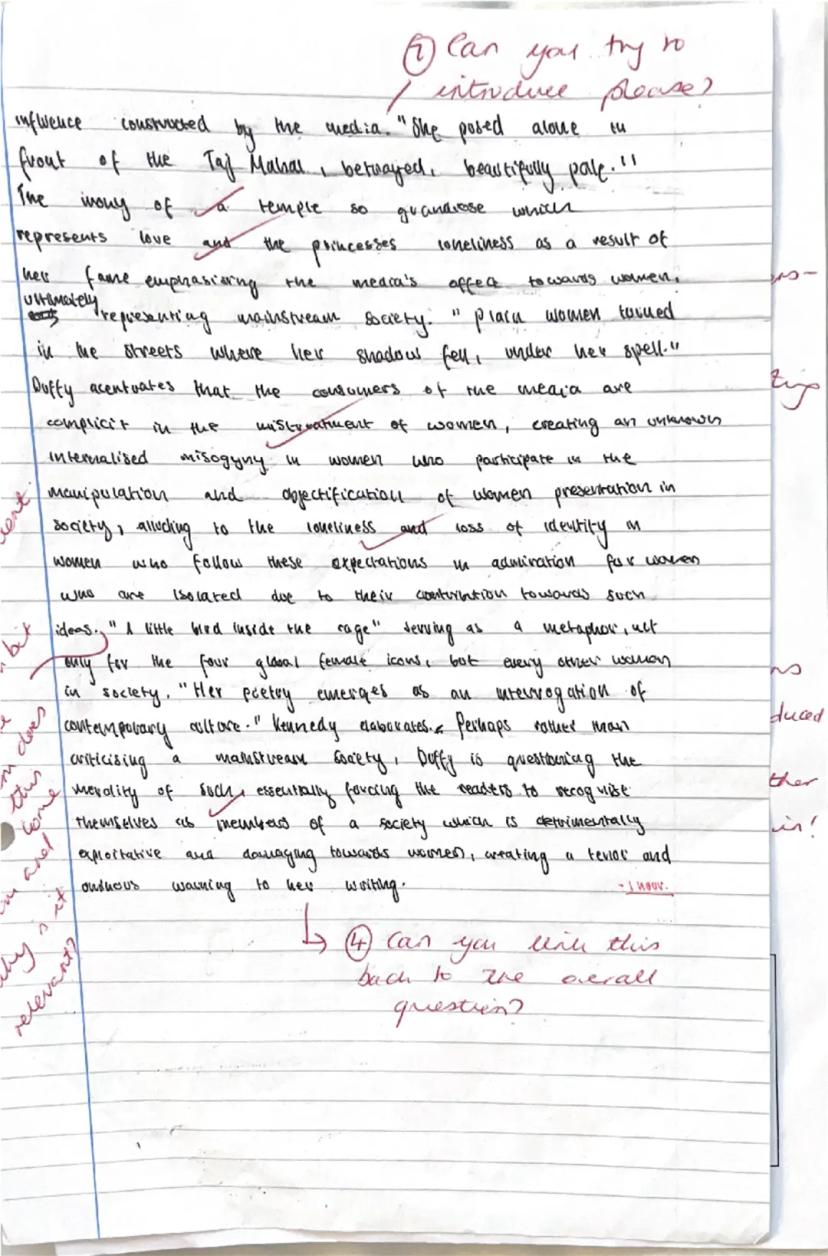 ② Can you try to
introduce please?
influence constructed by the media. "She posed alone in
front of the Taj Mahal, betrayed, beautifully pale."
The irony of a temple so grandiose which
represents love and the princesses loneliness as a result of
her fame emphasising the media's affect towards women,
ultimately
representing mainstream society. "Plain women turned
in the streets where her shadow fell, under her spell."
Duffy acentuates that the consumers of the media are
complicit in the mistreatment of women, creating an unknown
internalised misogyny in women who participate in the
manipulation and objectification of women presentation in
society, alluding to the loneliness and loss of identity in
women who follow these expectations in admiration for women
who are isolated due to their contribution towards such
ideas. "A little bird inside the cage" serving as a metaphor, not
only for the four global female icons, but every other woman
in society. "Her poetry emerges as an interrogation of
contemporary culture." Kennedy elaborates. Perhaps rather than
criticising a mainstream society, Duffy is questioning the
morality of such, essentially forcing the readers to recognise
themselves as members of a society which is detrimentally
exploitative and damaging towards women, creating a terror and
warning to her writing.
- 1 hour.
④ Can you link this
back to the overall
question?
bit
does
this
come
and
why is it
relevant?
duced
ther
in!